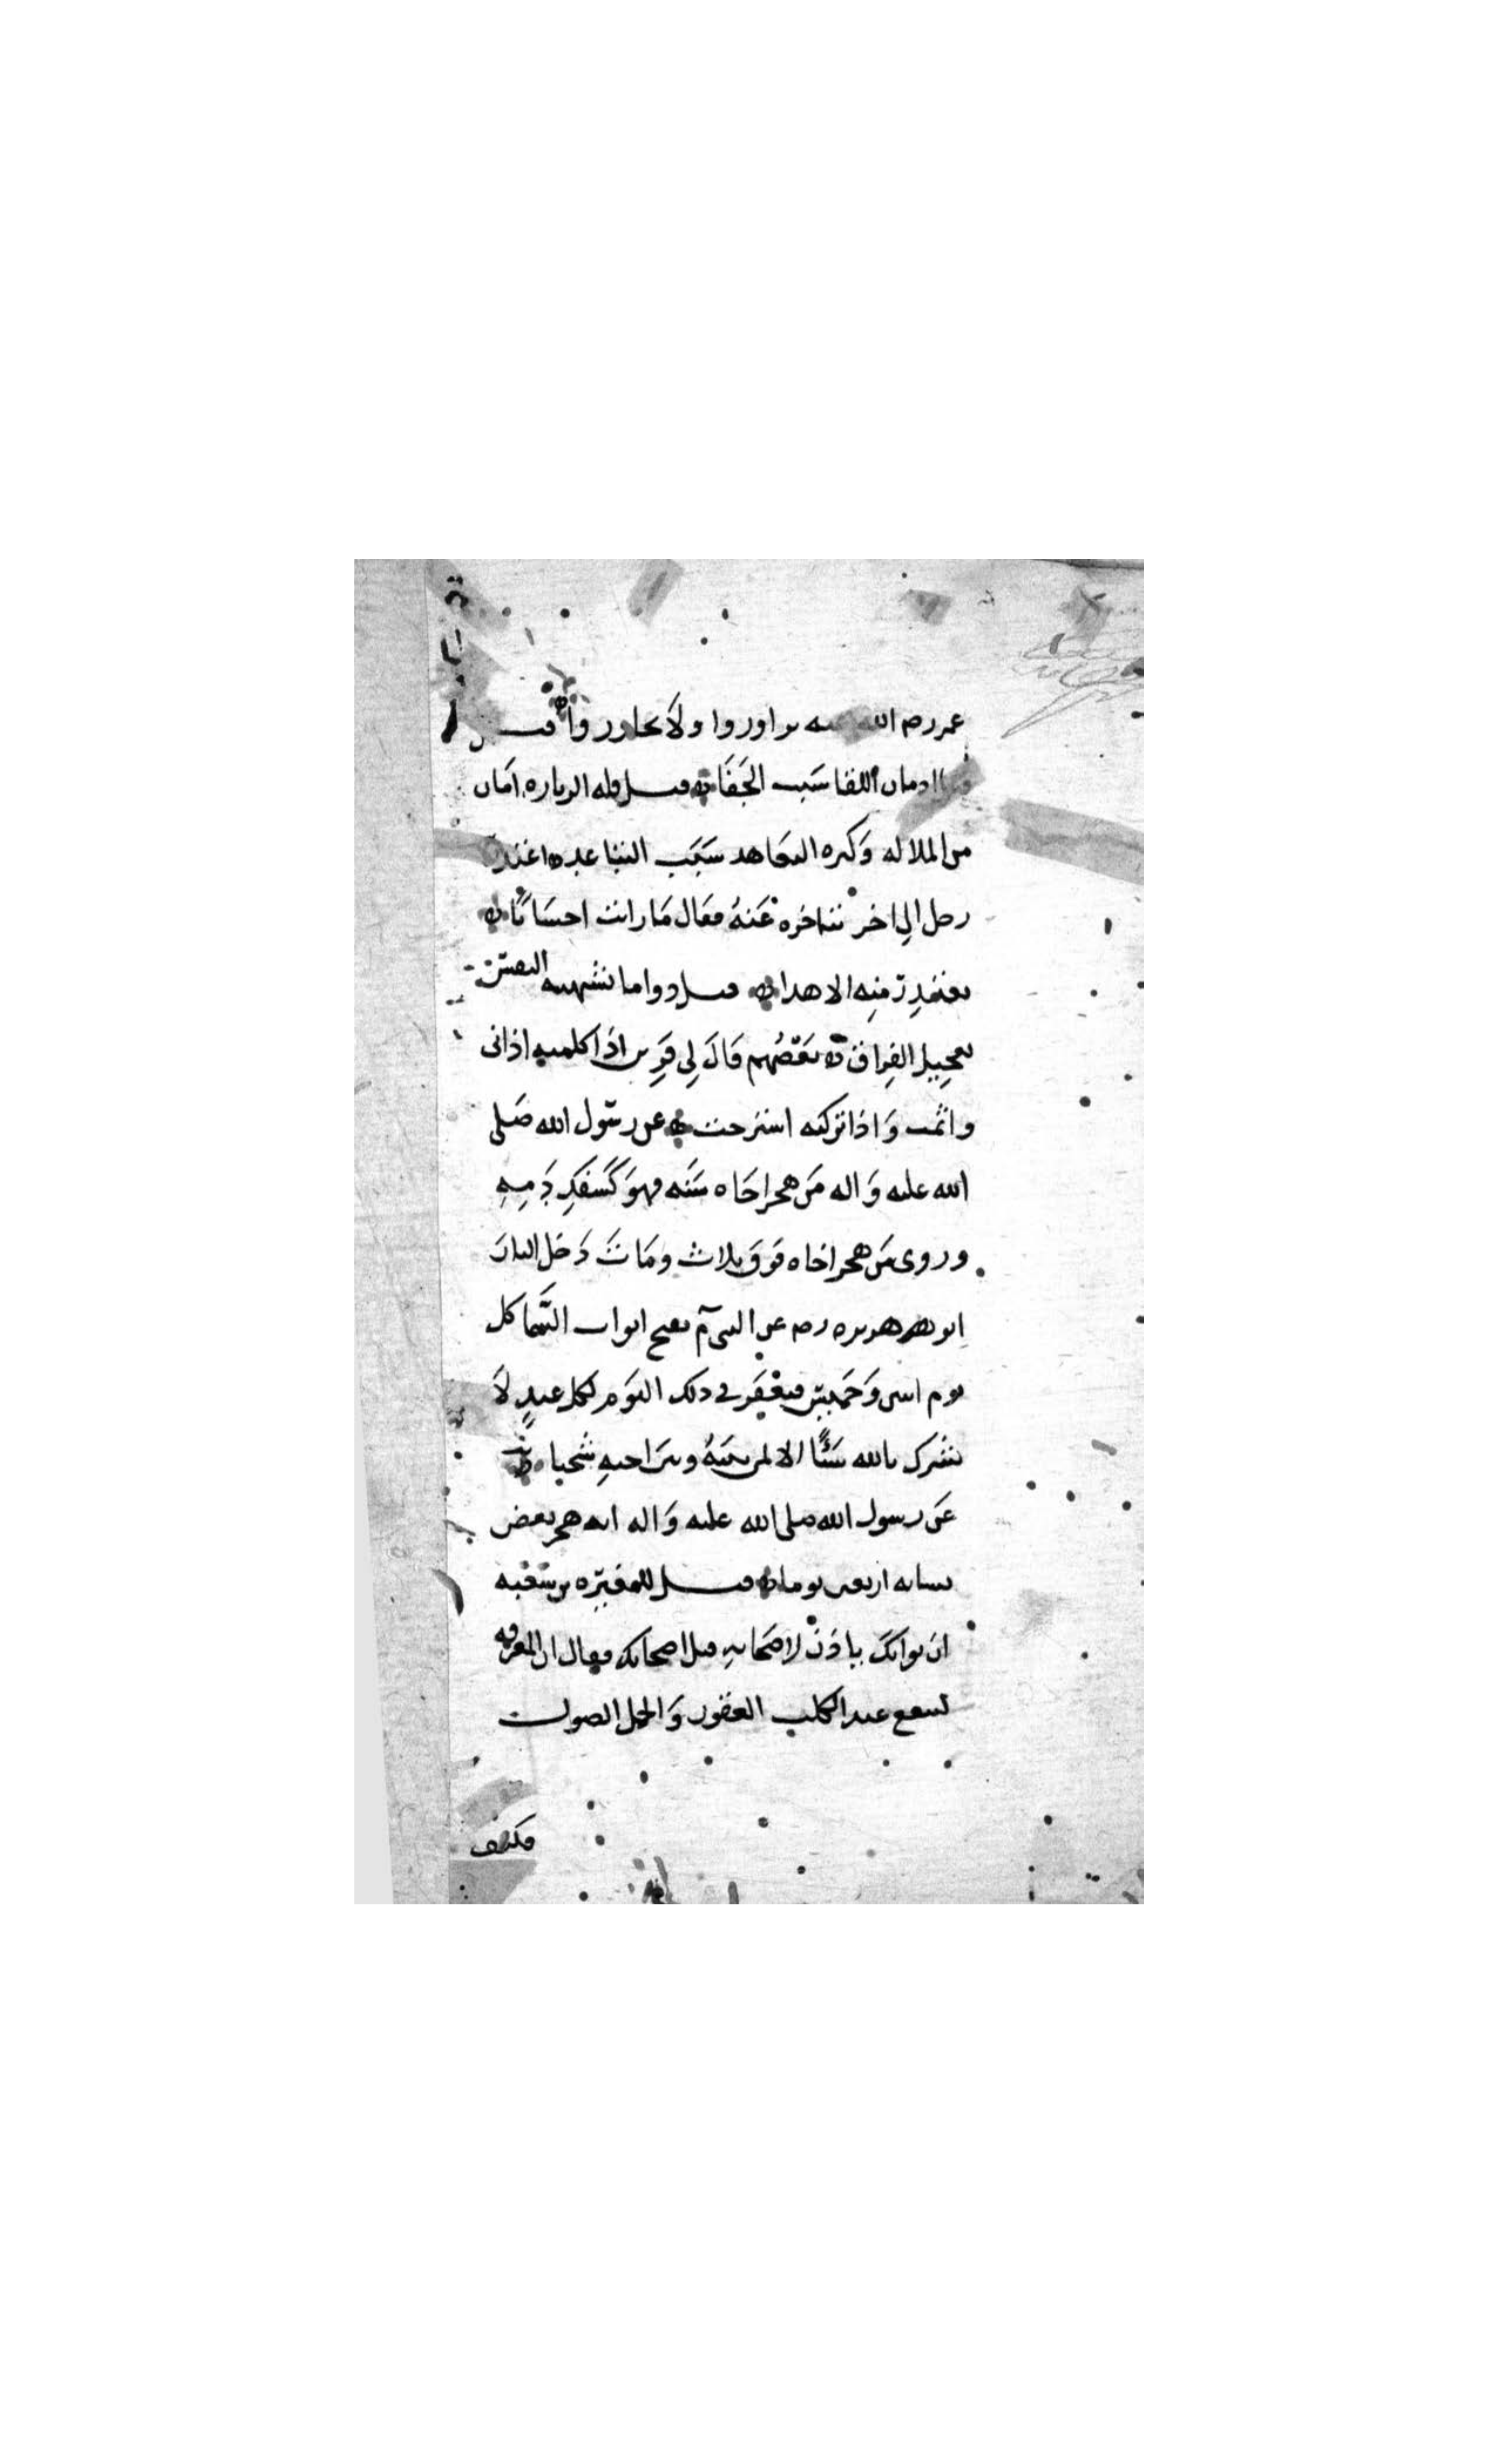 عمر رضه الله عنه تزاوروا ولا تجاوروا قيل
ادمان اللقا سبب الجفا قيل قله الزياره امان
من الملاله وكثره التعاهد سبب التباعد اعتذر
رجل الى اخر بتاخره عنه فقال ما رايت احسانا
يعتذر منه الا هذا قيل دواما تشتهيه النفس
تعجيل الفراق بعضهم قال لي قرين اذا كلمته اذاني
واثمت واذا تركته استرحت عن رسول الله صلى
الله عليه واله من هجر اخاه سنه فهو كسفك دمه
وروي من هجر اخاه فوق ثلاث ومات دخل النار
ابو هريره رضه عن النبي م تفتح ابواب السما كل
يوم اثنين وخميس فيغفر في ذلك اليوم لكل عبد لا
يشرك بالله شيئا الا لمن بينه وبين اخيه شحنا
عن رسول الله صلى الله عليه واله انه هجر بعض
نسايه اربعين يوما قيل للمغيره بن شعبه
ان بوابك ياذن لاصحابه قبل اصحابك فقال ان المعرفه
لتنفع عند الكلب العقور والجمل الصول
فكيف